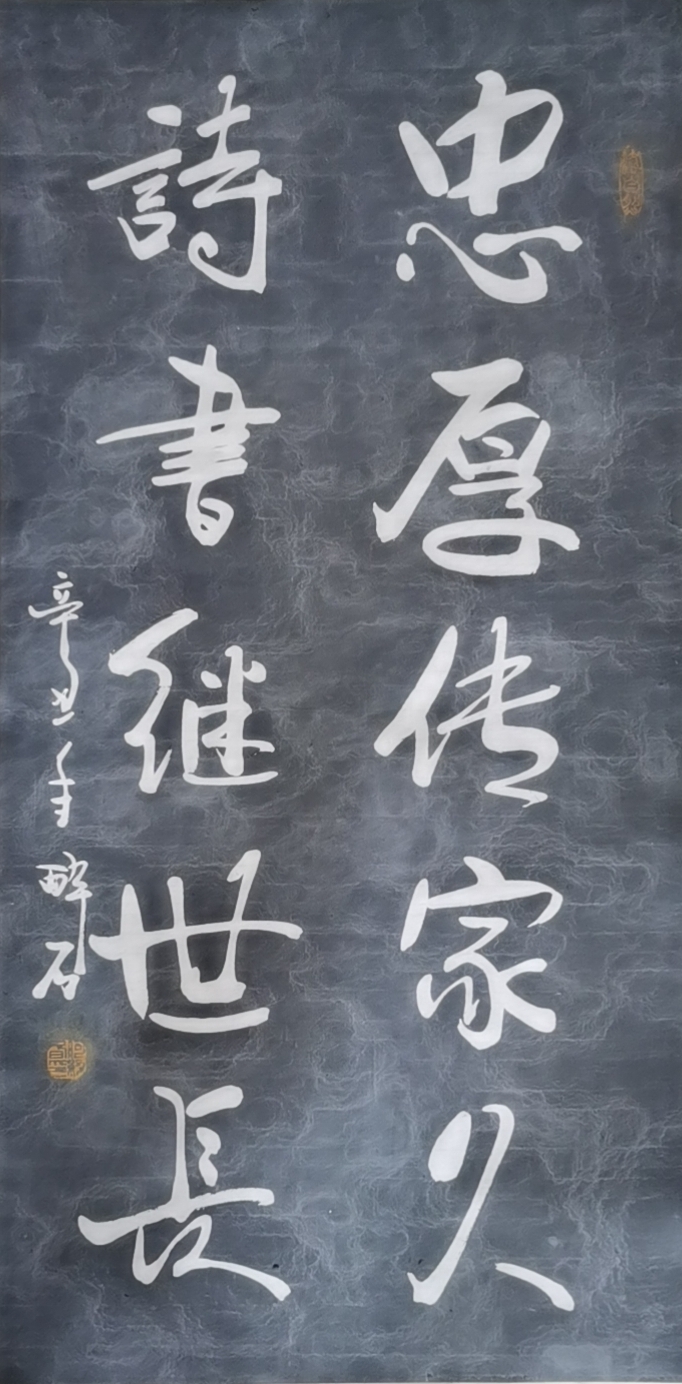 忠厚传家久
詩書继世長
辛丑年 醉石